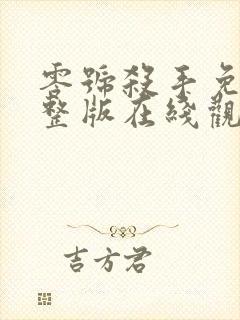 零號殺手免
整版在綫觀
吉方君